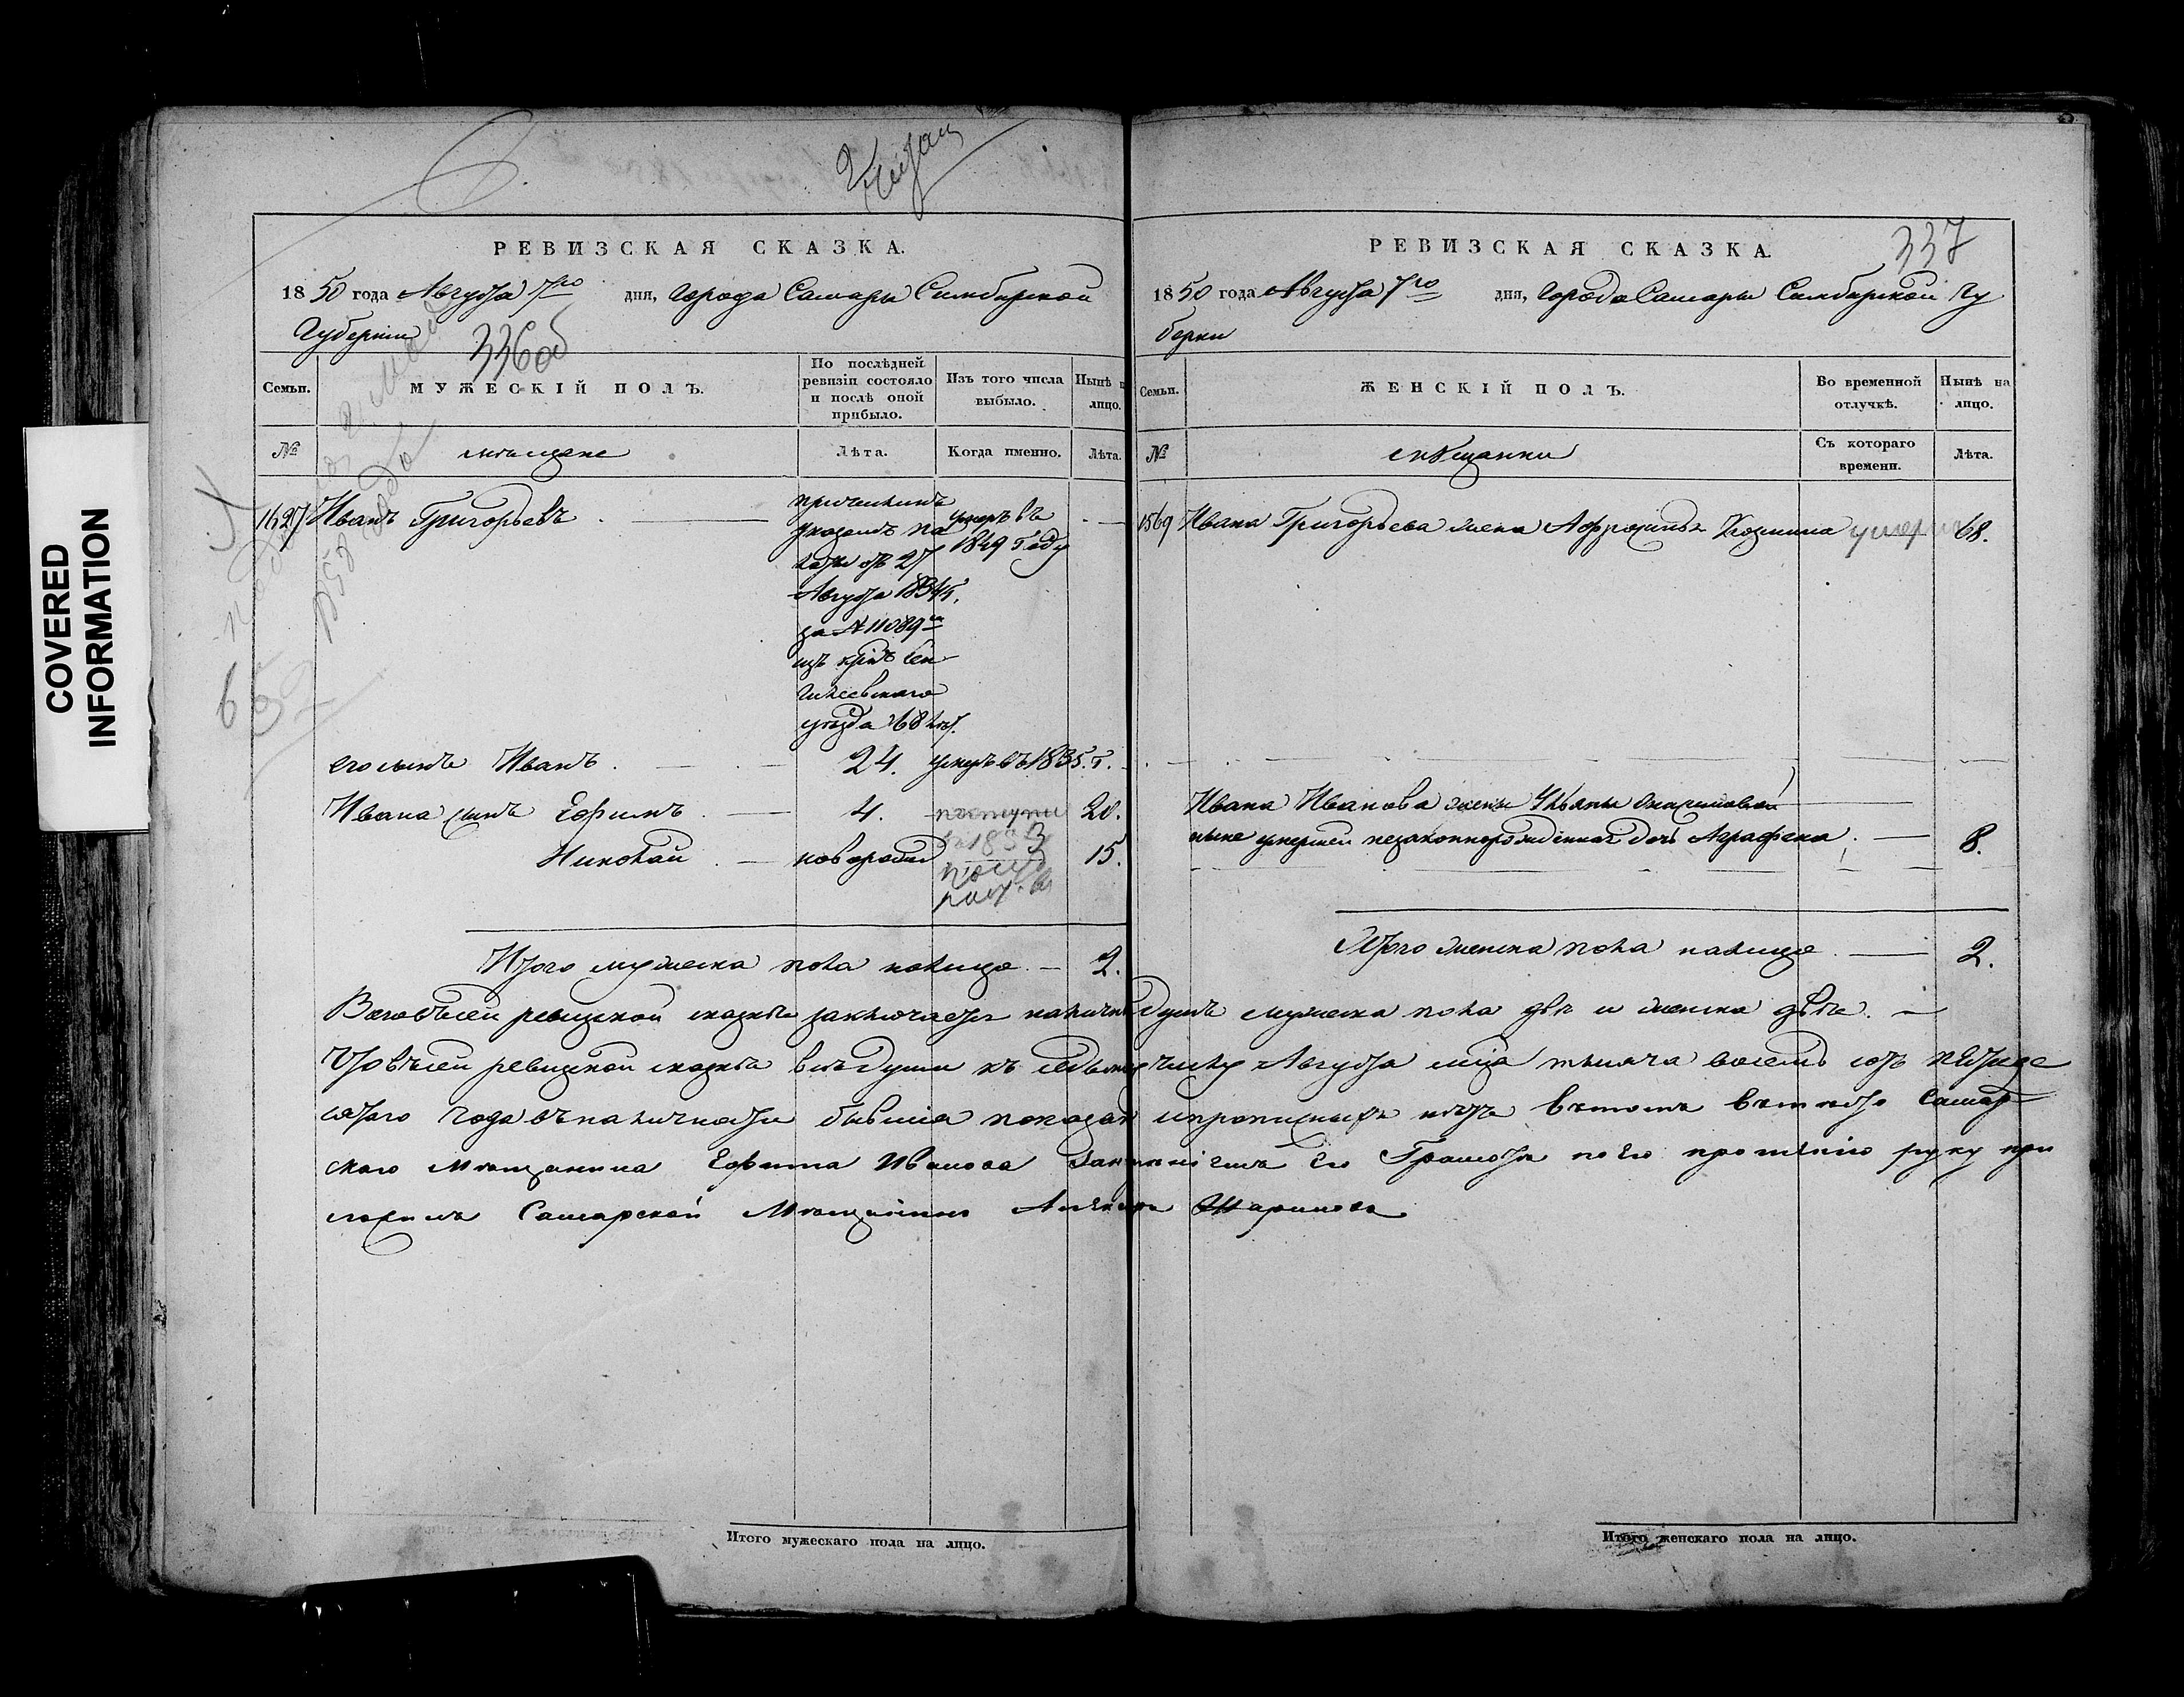 COVERED
INFORMATION
РЕВИЗСКАЯ СКАЗКА.
1850 года Августа 7го дня, города Самары Симбирской
Губернии
336об
Семьи.
МУЖЕСКІЙ ПОЛЪ.
По послѣдней
ревизіи состояло
и послѣ оной
прибыло.
Изъ того числа
выбыло.
Нынѣ
лицо.
№
мѣщане
Лѣта.
Когда именно.
Лѣта.
1627 Иванъ Григорьевъ
причисленъ
указомъ па
латы отъ 27
Августа 1834 г.
за № 11089
изъ
уѣзда 68 лѣт.
умеръ въ
1849 году
его сынъ Иванъ
24.
умеръ въ 1835. г.
Ивана сынъ Ефимъ
4.
20.
Николай
новорожд
15.
Итого мужеска пола налицо
2.
РЕВИЗСКАЯ СКАЗКА.
337
1850 года Августа 7го дня, Города Самары Симбирской Гу
бернии
Семьи.
ЖЕНСКІЙ ПОЛЪ.
Во временной
отлучкѣ.
Нынѣ на
лицо.
№
мѣщанки
Съ котораго
времени.
Лѣта.
1569 Ивана Григорьева жена Афросинья Козмина
умерла
68.
Ивана Иванова жены Ульяны
ныне умершей незаконнорожденная дочь Аграфена
8.
Итого женска пола налицо
2.
Всего въ сей ревизской сказкѣ заключается наличныхъ душъ мужеска пола двѣ и женска двѣ.
Что въ сей ревизской сказкѣ всѣ души къ седьмому числу Августа мца тысяча восемь сотъ пятиде
сятого года въ наличности бывшiя показаны и прописныхъ нѣтъ в томъ вместо Самар
ского Мѣщанина Ефима Иванова за его Грамоты по его прошению руку при
ложилъ Самарской Мѣщанинъ
Итого мужескаго пола на лицо.
Итого женскаго пола на лицо.